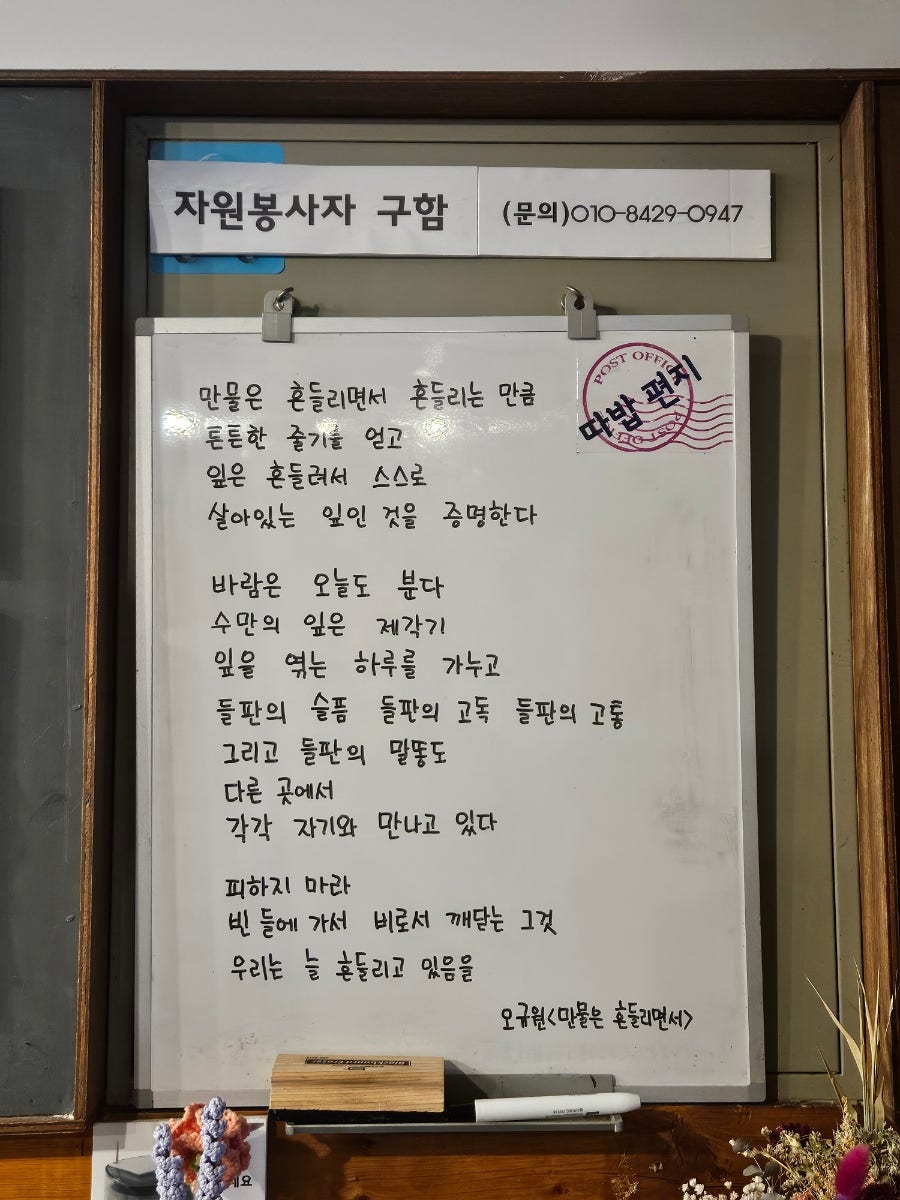 자원봉사자 구함 (문의)010-8429-0947
POST OFFICE
따밥 편지
POST OFF
만물은 흔들리면서 흔들리는 만큼
튼튼한 줄기를 얻고
잎은 흔들려서 스스로
살아있는 잎인 것을 증명한다
바람은 오늘도 분다
수만의 잎은 제각기
잎을 엮는 하루를 가누고
들판의 슬픔 들판의 고독 들판의 고통
그리고 들판의 말똥도
다른 곳에서
각각 자기와 만나고 있다
피하지 마라
빈 들에 가서 비로서 깨닫는 그것
우리는 늘 흔들리고 있음을
오규원<만물은 흔들리면서>
세요